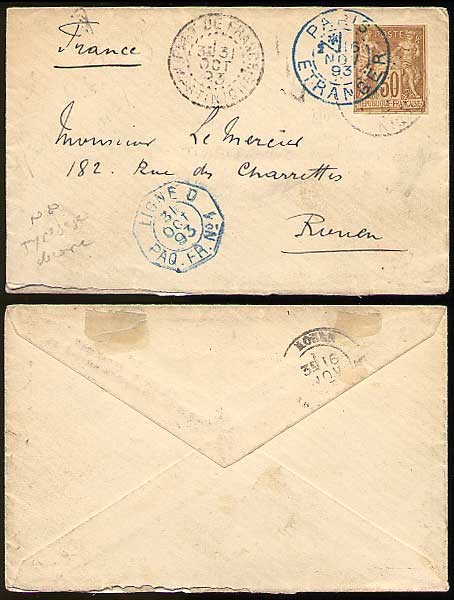 France
FORT-DE-FRANCE
31
OCT
93
MARTINIQUE
PARIS
16
NOV
93
ETRANGER
POSTES
30
REPUBLIQUE FRANÇAISE
Monsieur Le Mercier
182. Rue des Charrettes
Rouen
LIGNE D
31
OCT
93
PAQ. FR. Nº4
ROUEN
3E 16
NOV